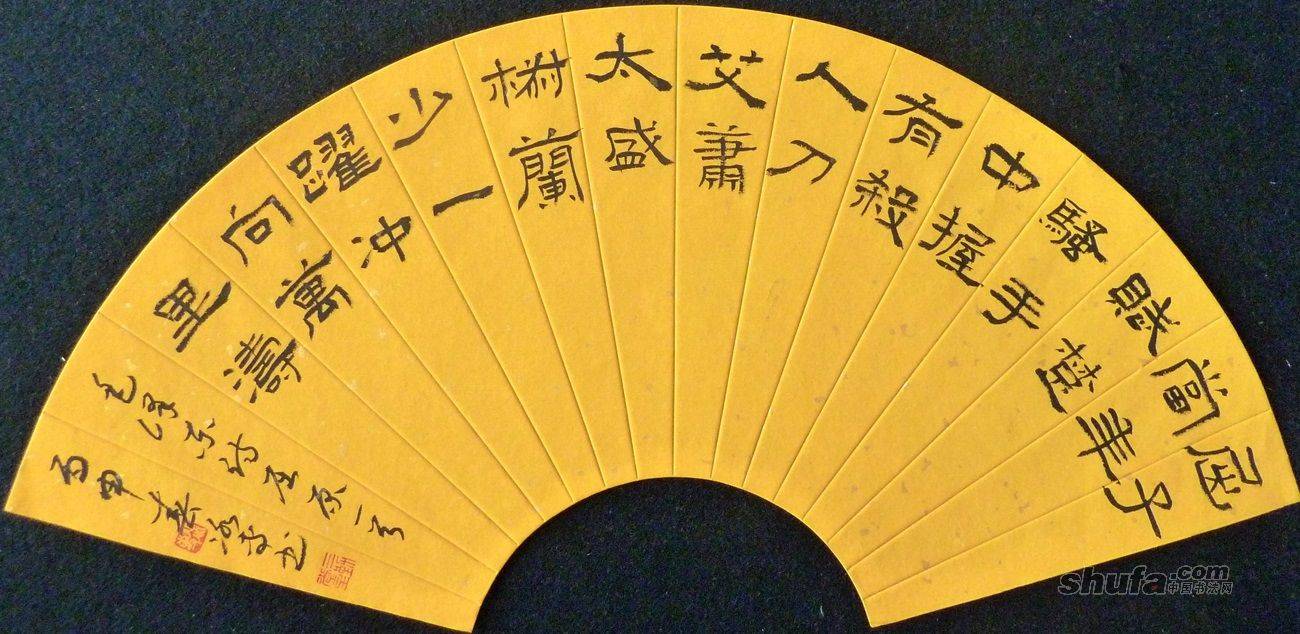 屈子
當年
賦楚
騷手
中握
有殺
人刀
艾蕭
太盛
椒蘭
少一
躍冲
向萬
里濤
毛泽东诗屈原一首
丙申春书
shufa.com
中国书法网